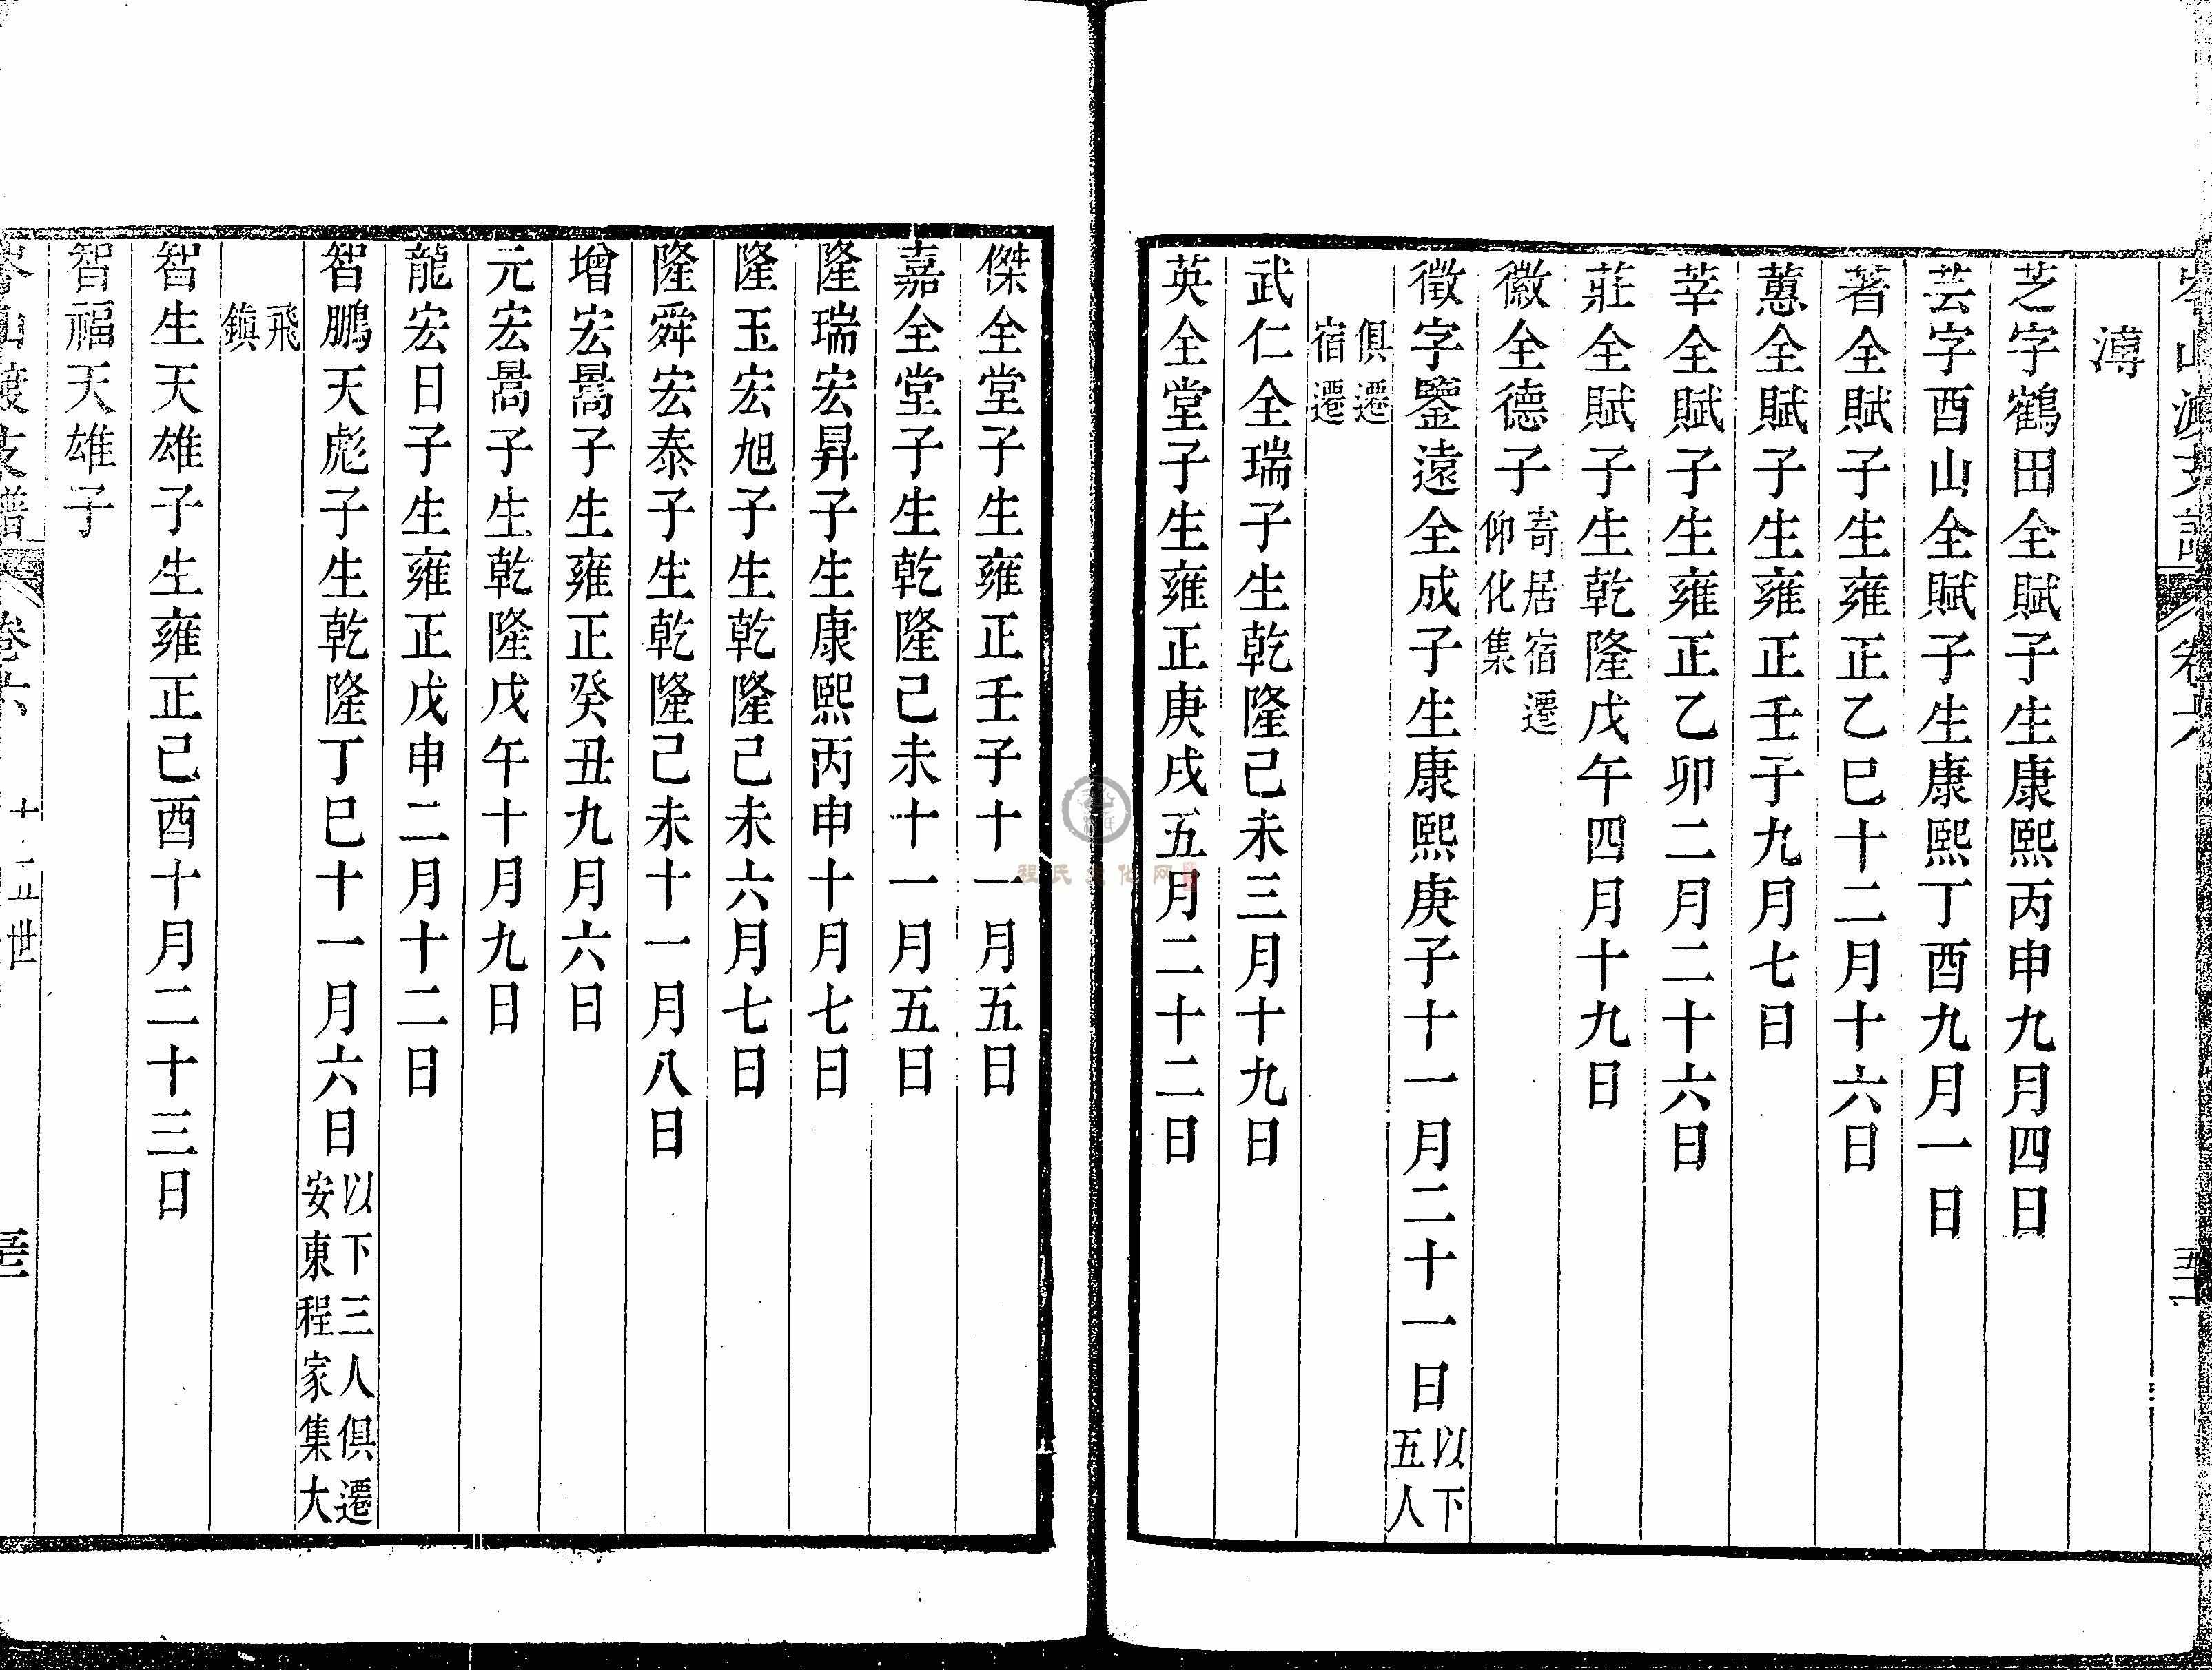 岑山渡支譜 卷六 五二
溥
芝字鶴田全賦子生康熙丙申九月四日
芸字酉山全賦子生康熙丁酉九月一日
著全賦子生雍正乙巳十二月十六日
蕙全賦子生雍正壬子九月七日
莘全賦子生雍正乙卯二月二十六日
莊全賦子生乾隆戊午四月十九日
徽全德子寄居宿遷仰化集
徵字鑒遠全成子生康熙庚子十一月二十一日以下五人
俱遷宿遷
武仁全瑞子生乾隆己未三月十九日
英全堂子生雍正庚戌五月二十二日
傑全堂子生雍正壬子十一月五日
嘉全堂子生乾隆己未十一月五日
隆瑞宏昇子生康熙丙申十月七日
隆玉宏旭子生乾隆己未六月七日
隆舜宏泰子生乾隆己未十一月八日
增宏暠子生雍正癸丑九月六日
元宏暠子生乾隆戊午十月九日
龍宏日子生雍正戊申二月十二日
智鵬天彪子生乾隆丁巳十一月六日以下三人俱遷安東程家集大
飛鎮
智生天雄子生雍正己酉十月二十三日
智福天雄子
岑山渡支譜 卷六 十五世
程氏文化网